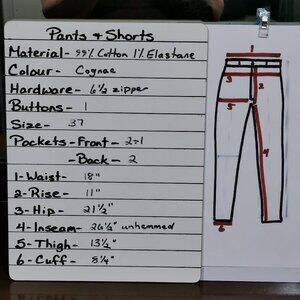 Pants & Shorts
Material - 99% Cotton 1% Elastane
Colour - Cognac
Hardware - 6½ zipper
Buttons - 1
Size - 37
Pockets - Front - 2+1
- Back - 2
1 - Waist - 18"
2 - Rise - 11"
3 - Hip - 21½"
4 - Inseam - 26½" unhemmed
5 - Thigh - 13½"
6 - Cuff - 8¼"
1
2
3
5
4
6